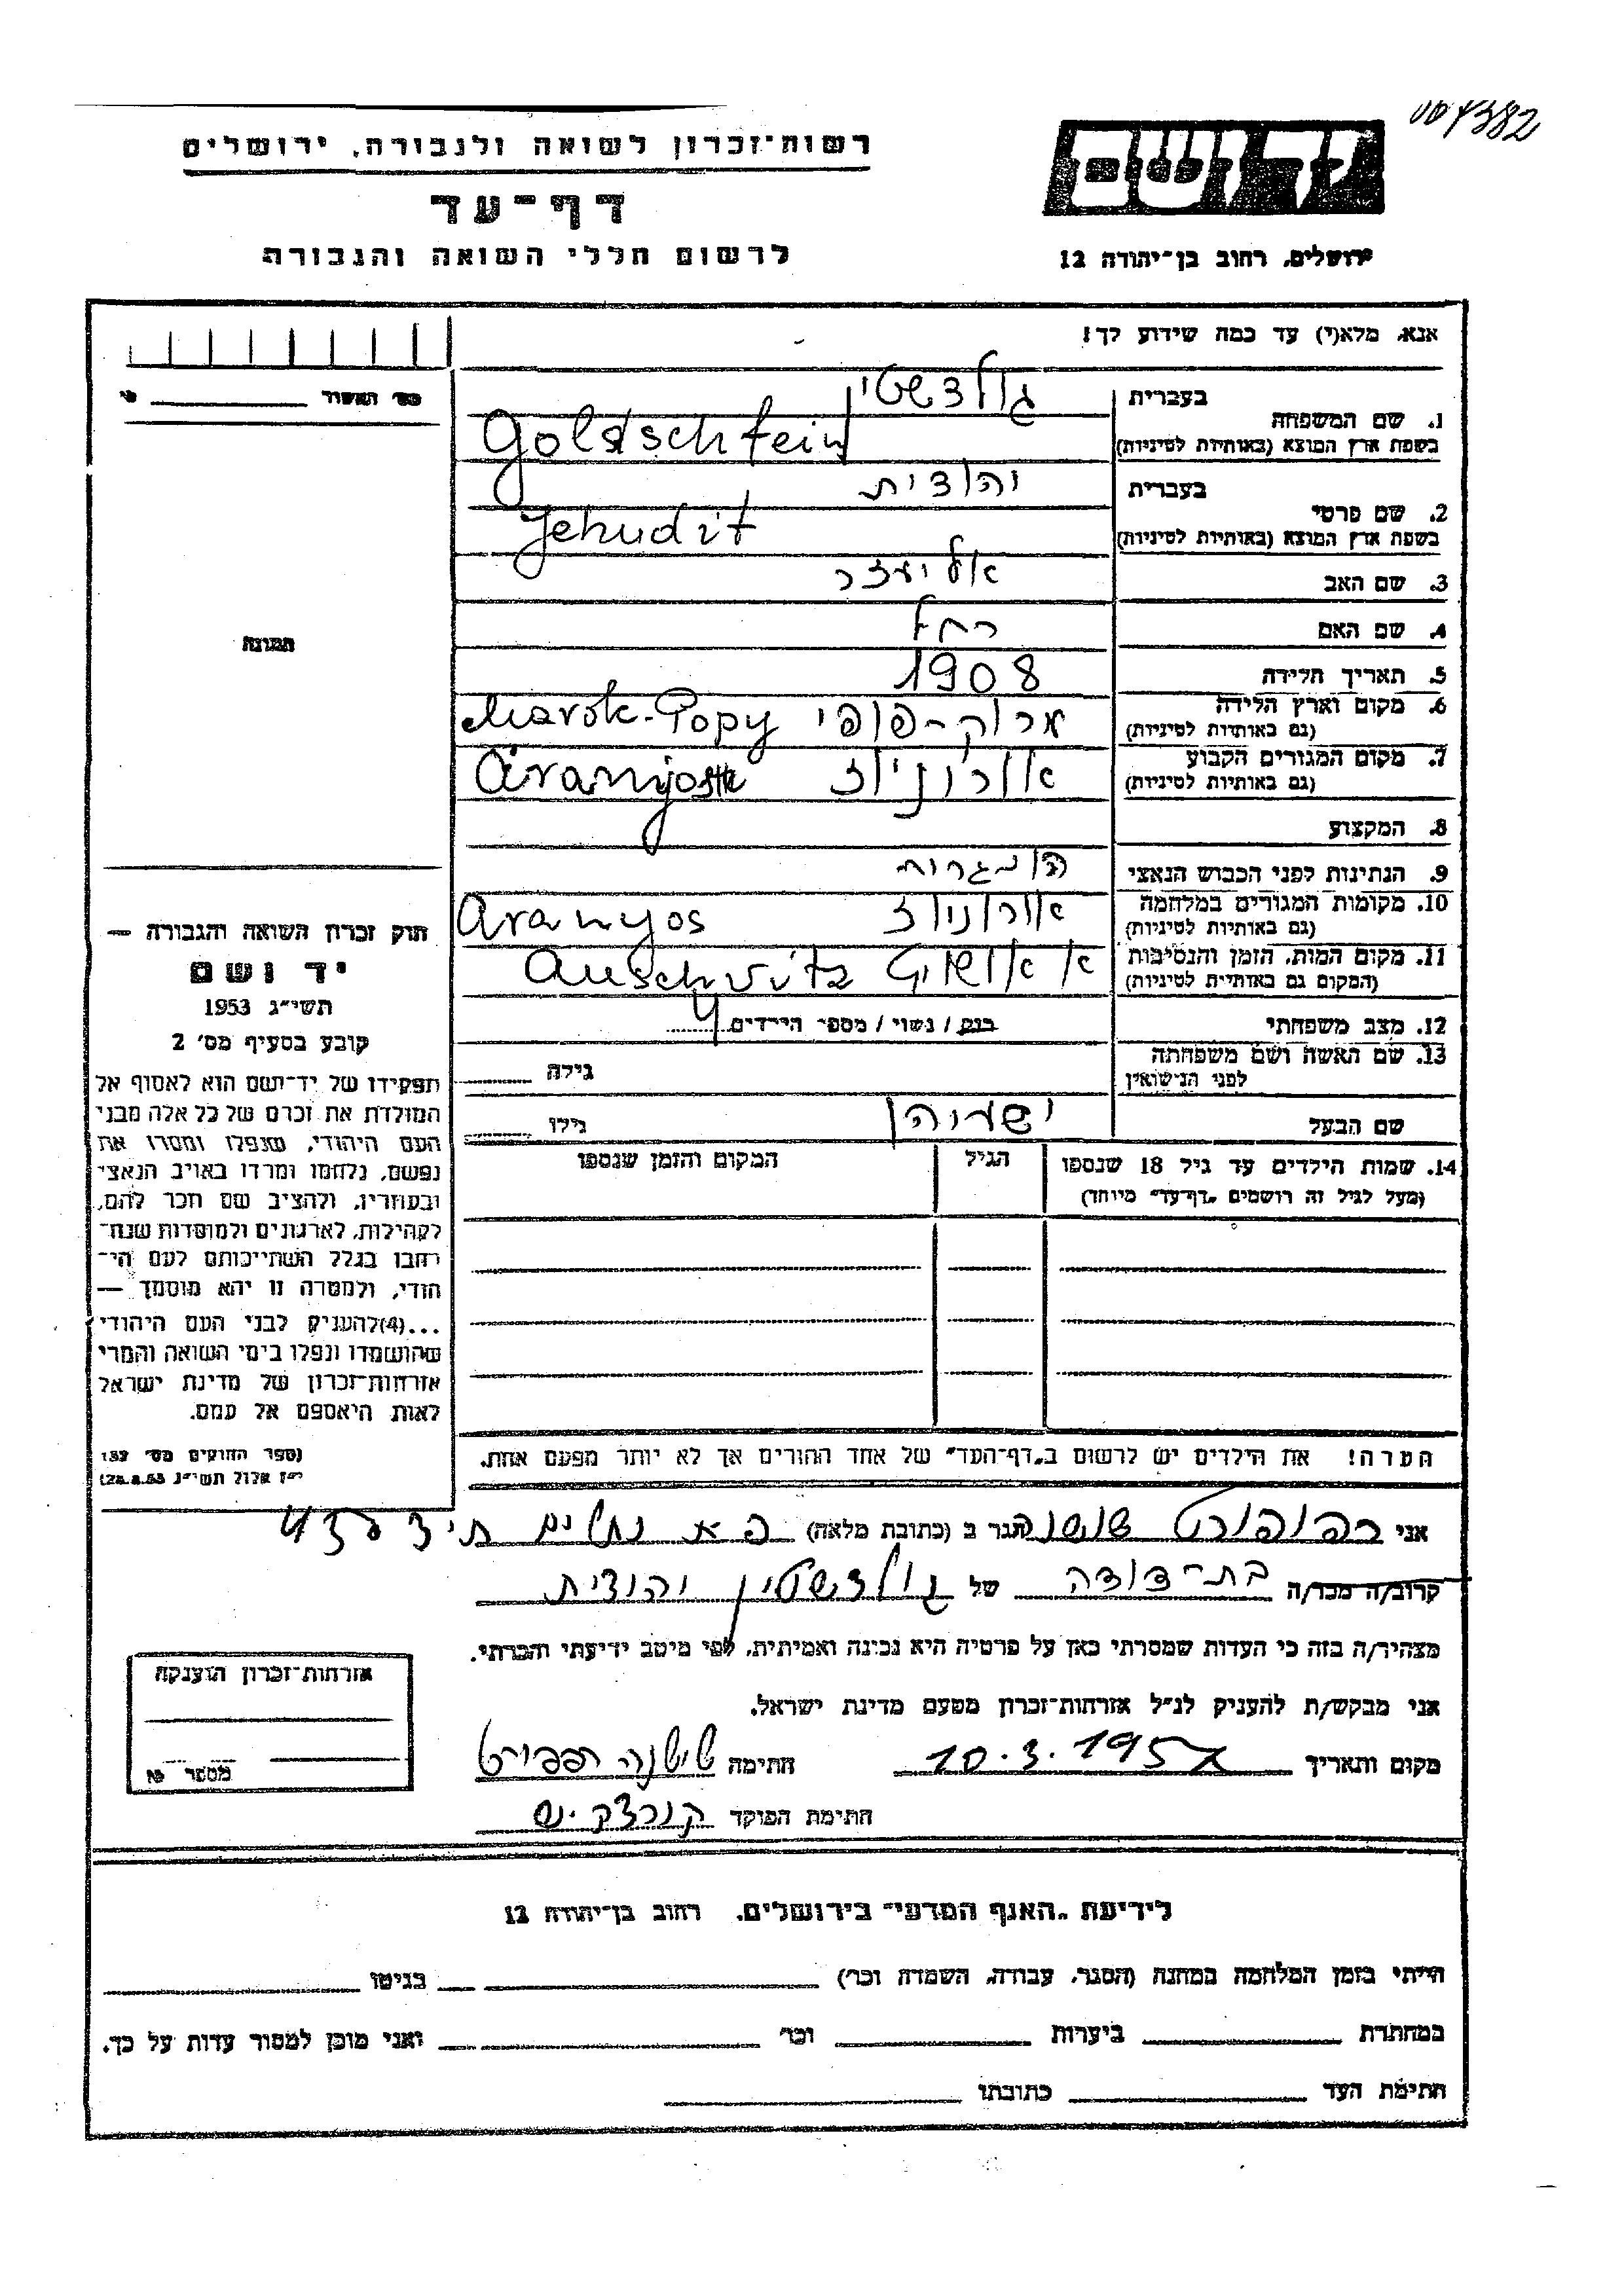 רשות־זכרון לשואה ולגבורה, ירושלים
דף־עד
לרשום חללי השואה והגבורה
יד ושם
ירושלים, רחוב בן־יהודה 12
אנא, מלא(י) עד כמה שידוע לך!
1. שם המשפחה
בעברית
גולדשטין
בשפת ארץ המוצא (באותיות לטיניות)
Goldschtein
2. שם פרטי
בעברית
יהודית
בשפת ארץ המוצא (באותיות לטיניות)
Jehudit
3. שם האב
אליעזר
4. שם האם
רחל
5. תאריך הלידה
1908
6. מקום וארץ הלידה
(גם באותיות לטיניות)
מרוק-פופי Marok-Popy
7. מקום המגורים הקבוע
(גם באותיות לטיניות)
8. המקצוע
9. הנתינות לפני הכבוש הנאצי
הונגרית
10. מקומות המגורים במלחמה
(גם באותיות לטיניות)
Aranyos
11. מקום המות, הזמן והנסיבות
(המקום גם באותיות לטיניות)
Auschvitz
12. מצב משפחתי
רווק / נשוי / מספר הילדים 4
13. שם האשה ושם משפחתה
לפני הנישואין
גילה
שם הבעל
גילו
14. שמות הילדים עד גיל 18 שנספו
(מעל לגיל זה רושמים "דף־עד" מיוחד)
הגיל
המקום והזמן שנספו
הערה! את הילדים יש לרשום ב"דף־העד" של אחד ההורים אך לא יותר מפעם אחת.
תמונה
חוק זכרון השואה והגבורה —
יד ושם
תשי"ג 1953
קובע בסעיף מס' 2
תפקידו של יד־ושם הוא לאסוף אל
המולדת את זכרם של כל אלה מבני
העם היהודי, שנפלו ומסרו את
נפשם, נלחמו ומרדו באויב הנאצי
ובעוזריו, ולהציב שם וזכר להם,
לקהילות, לארגונים ולמוסדות שנח־
רבו בגלל השתייכותם לעם הי־
הודי, ולמטרה זו יהא מוסמך —
...(4)להעניק לבני העם היהודי
שהושמדו ונפלו בימי השואה והמרי
אזרחות־זכרון של מדינת ישראל
לאות היאספם אל עמם.
אני רפופורט שושנה הגר ב (כתובת מלאה)
קרוב/ה מכר/ה בת־דודה של גולדשטין יהודית
מצהיר/ה בזה כי העדות שמסרתי כאן על פרטיה היא נכונה ואמיתית, לפי מיטב ידיעתי והכרתי.
אני מבקש/ת להעניק לנ"ל אזרחות־זכרון מטעם מדינת ישראל.
מקום ותאריך 10.3.195 חתימה שושנה רפפורט
חתימת הפוקד
אזרחות־זכרון הוענקה
מספר
לידיעת "האגף המדעי" בירושלים, רחוב בן־יהודה 12
הייתי בזמן המלחמה במחנה (הסגר, עבודה, השמדה וכו') בגיטו
במחתרת ביערות וכו' ואני מוכן למסור עדות על כך.
חתימת העד כתובתו